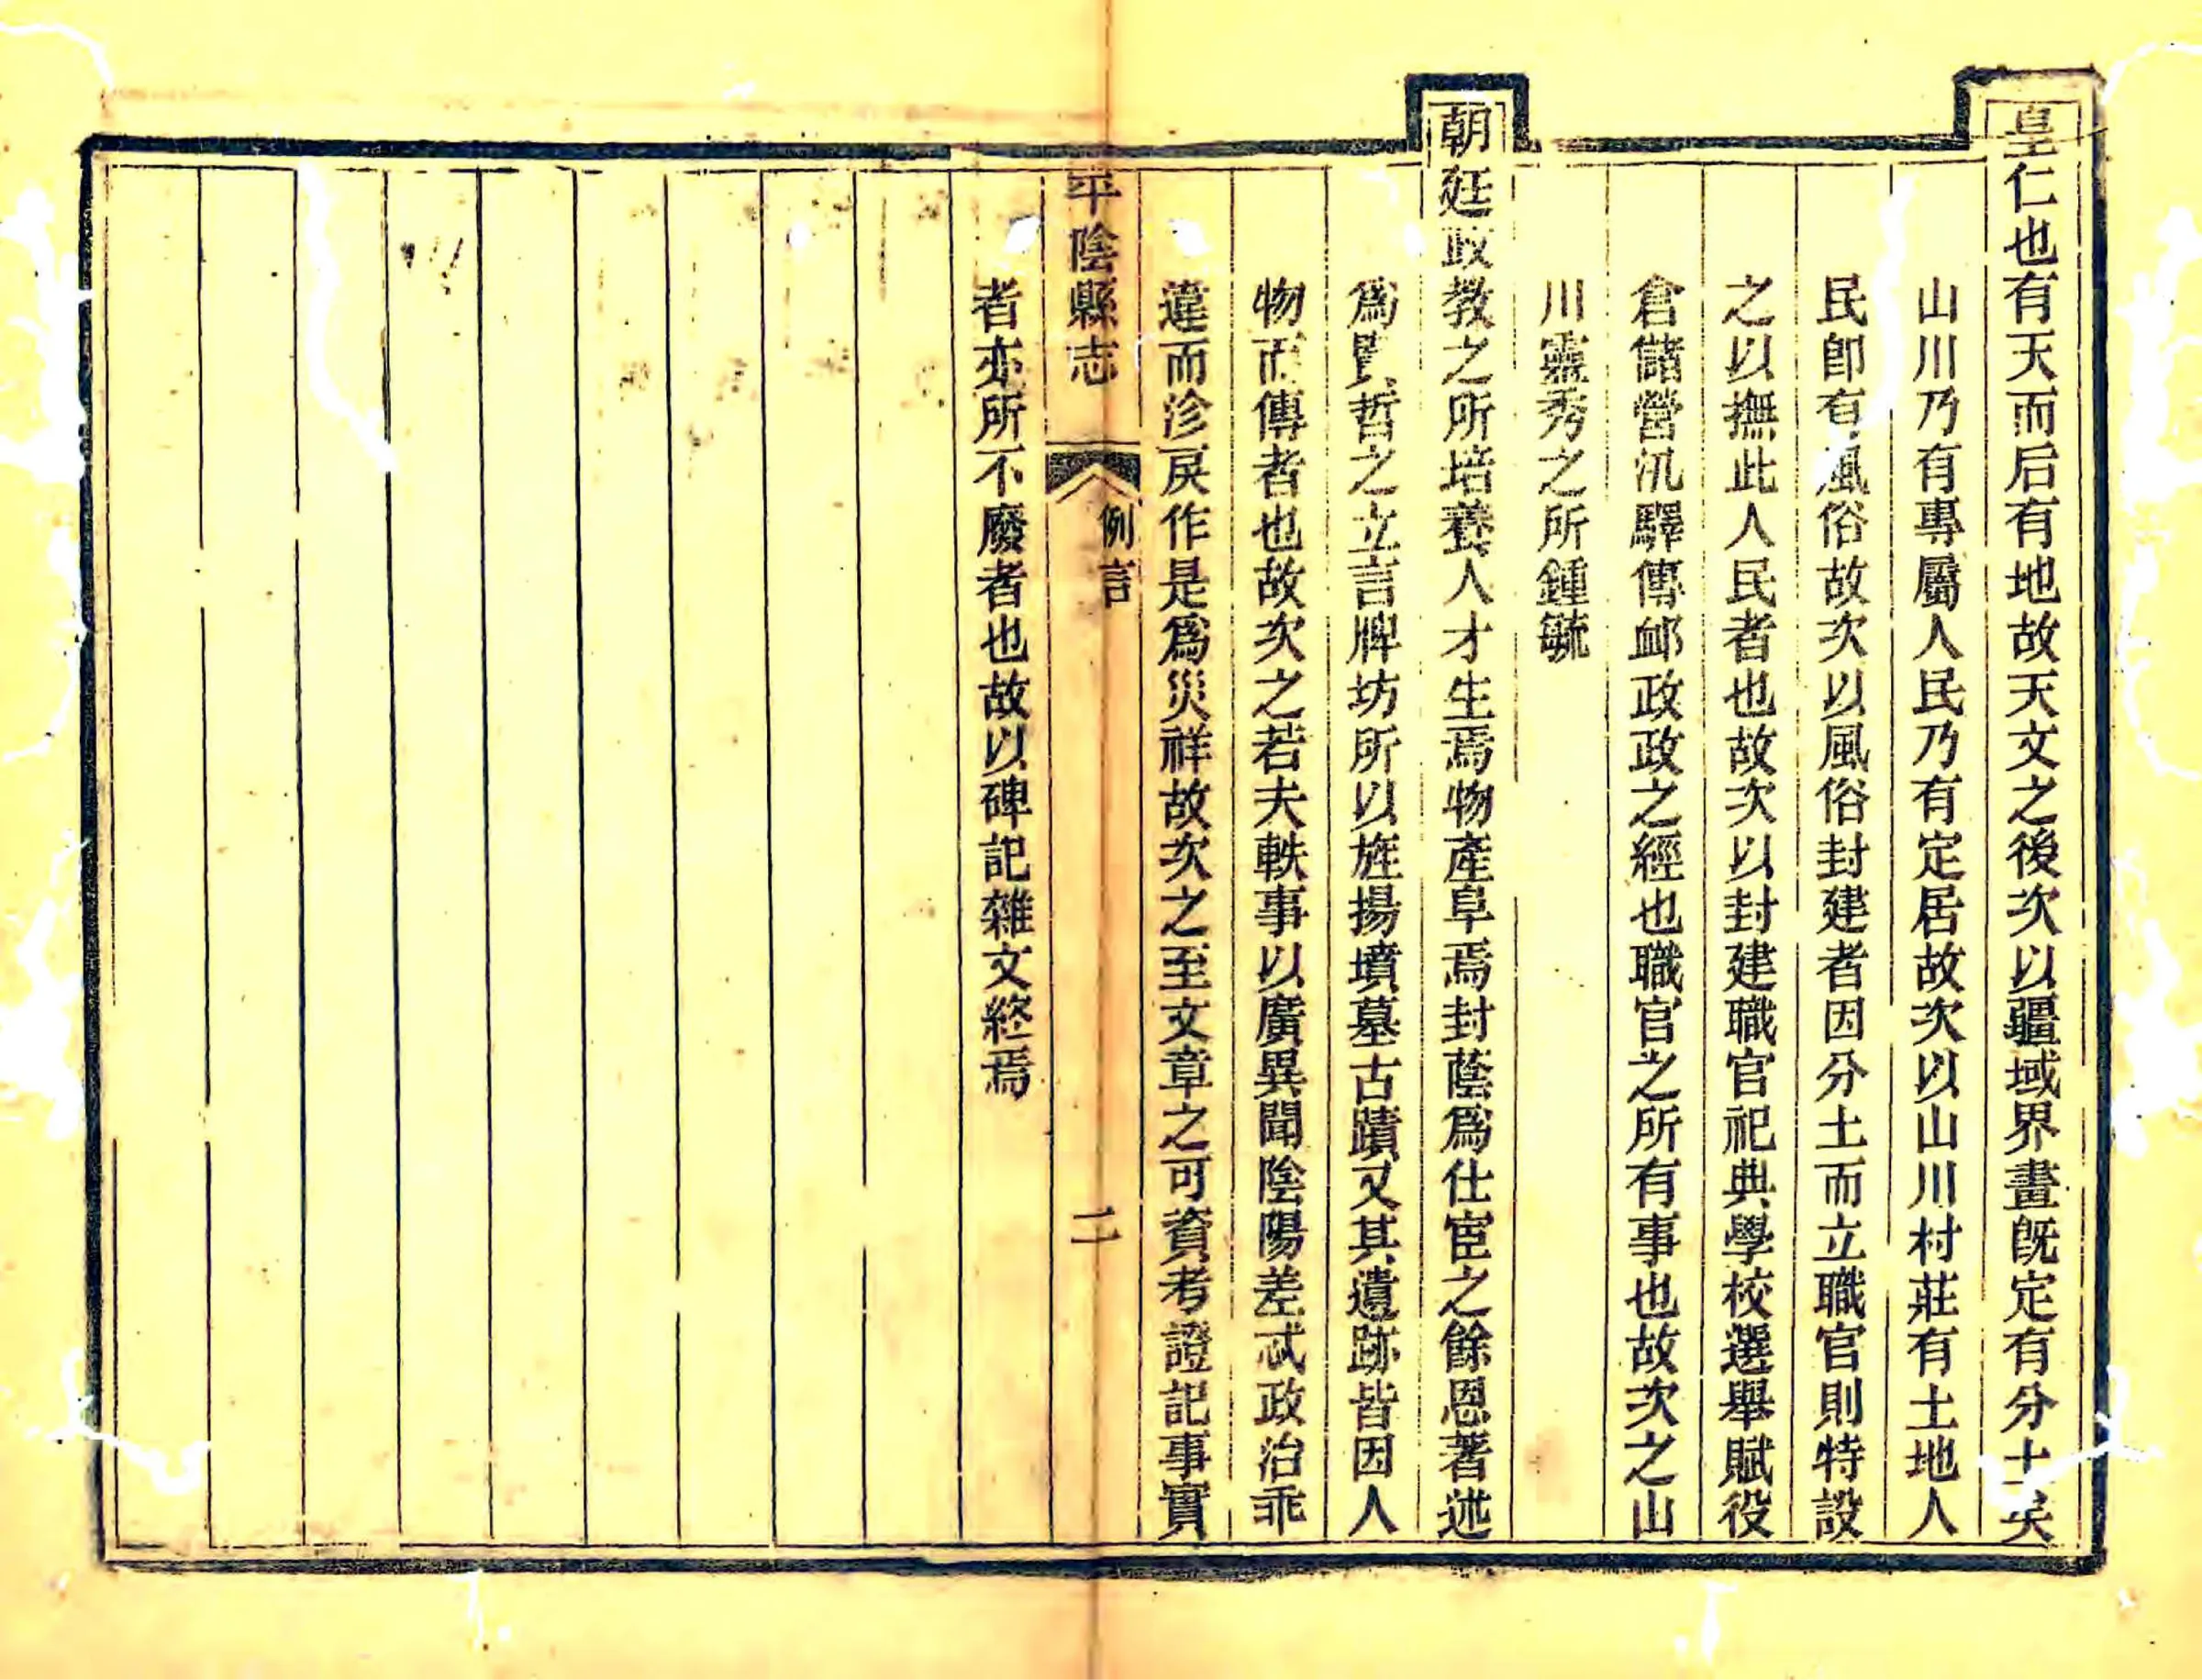 皇仁也有天而后有地故天文之後次以疆域界畫旣定有分土矣
山川乃有專屬人民乃有定居故次以山川村莊有土地人
民卽有風俗故次以風俗封建者因分土而立職官則特設
之以撫此人民者也故次以封建職官祀典學校選舉賦役
倉儲營汛驛傳䘏政政之經也職官之所有事也故次之山
川靈秀之所鍾毓
朝廷政教之所培養人才生焉物產阜焉封蔭爲仕宦之餘恩著述
爲賢哲之立言牌坊所以旌揚墳墓古蹟又其遺跡皆因人
物而傳者也故次之若夫軼事以廣異聞陰陽差忒政治乖
違而沴戾作是爲災祥故次之至文章之可資考證記事實
平陰縣志
例言
二
者亦所不廢者也故以碑記雜文終焉